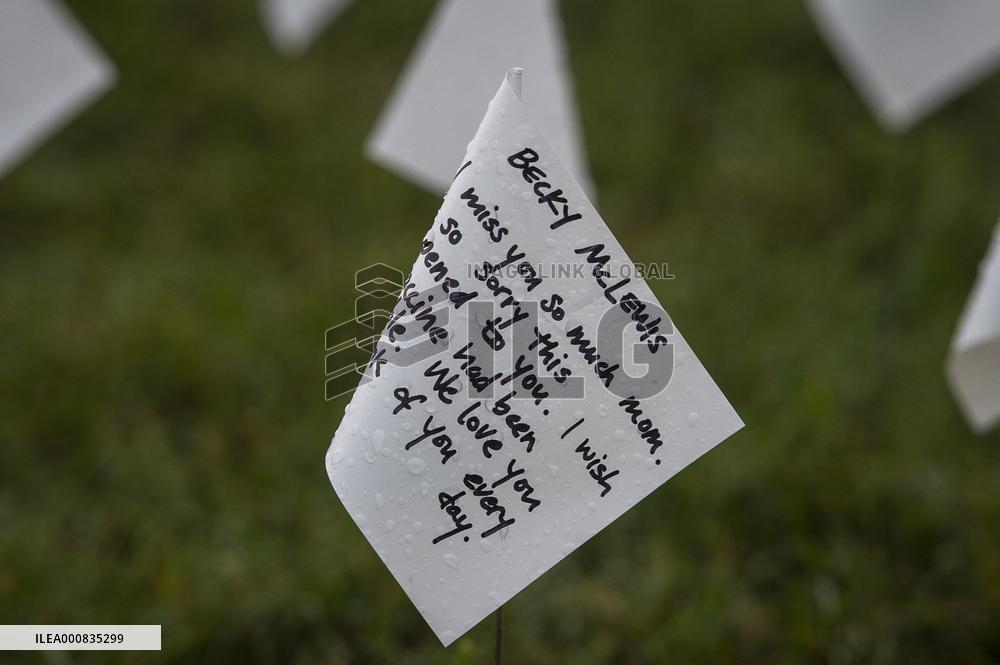 BECKY McLEWIS
I miss you so much mom.
so sorry this
pened to you. I wish
ccine had been
We love you
k of you every
day.
IMAGE LINK GLOBAL
ILG
ILEA000835299